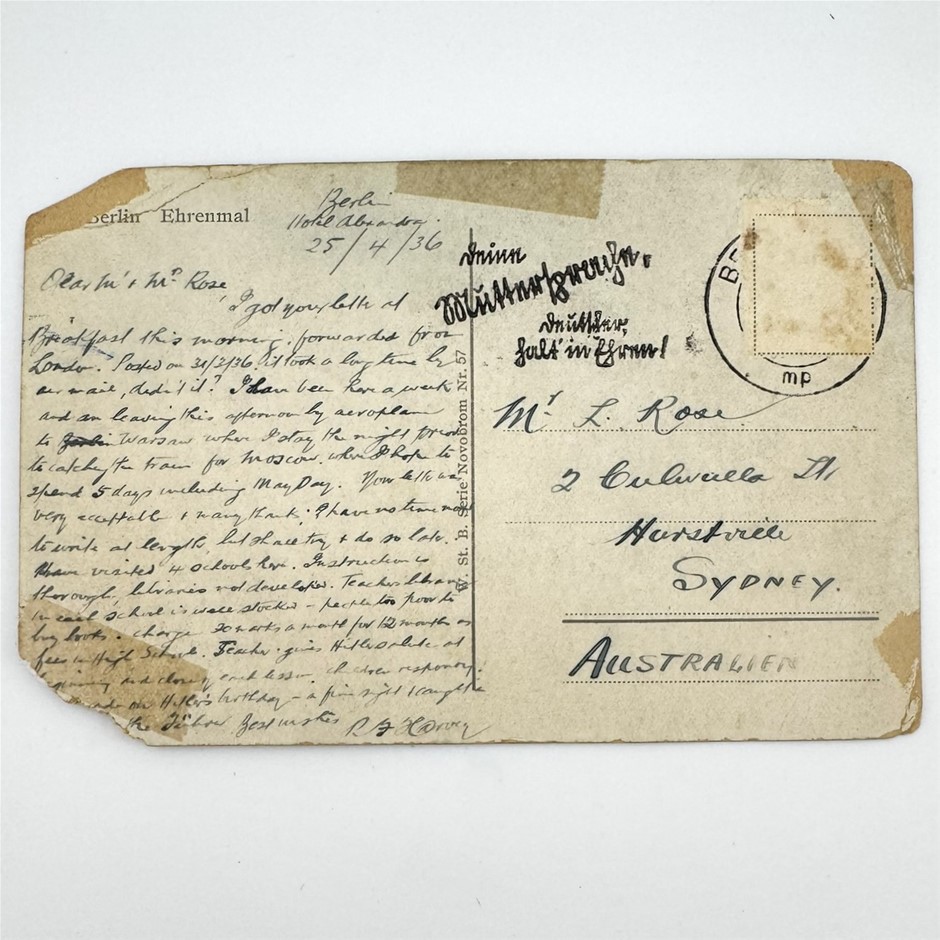 Berlin Ehrenmal
Berlin
Hotel Alexandra.
25/4/36
Dear Mr & Mrs Rose
I got your letter at
Breakfast this morning, forwarded from
London. Posted on 31/3/36! it took a long time by
air mail, didn't it? I have been here a week
and am leaving this afternoon by aeroplane
to Warsaw where I stay the night prior
to catching the train for Moscow. where I hope to
spend 5 days including May Day. Your letter was
very acceptable & many thanks. I have no time now
to write at length, but shall try & do so later.
Have visited 4 schools here. Instruction is
thorough, libraries not developed. Teachers library
in each school is well stocked - people too poor to
buy books. charge 20 marks a month for 12 months as
fees in High School. Teacher gives Hitler salute at
beginning and closing each lesson. children responding.
on Hitler's birthday - a fine sight & caught
the Führer Best wishes
W. St. B. Serie Novobrom Nr. 57
Deine
Muttersprache,
Deutscher,
halt in Ehren!
mp
Mr L. Rose
2 St
Hurstville
SYDNEY.
AUSTRALIEN